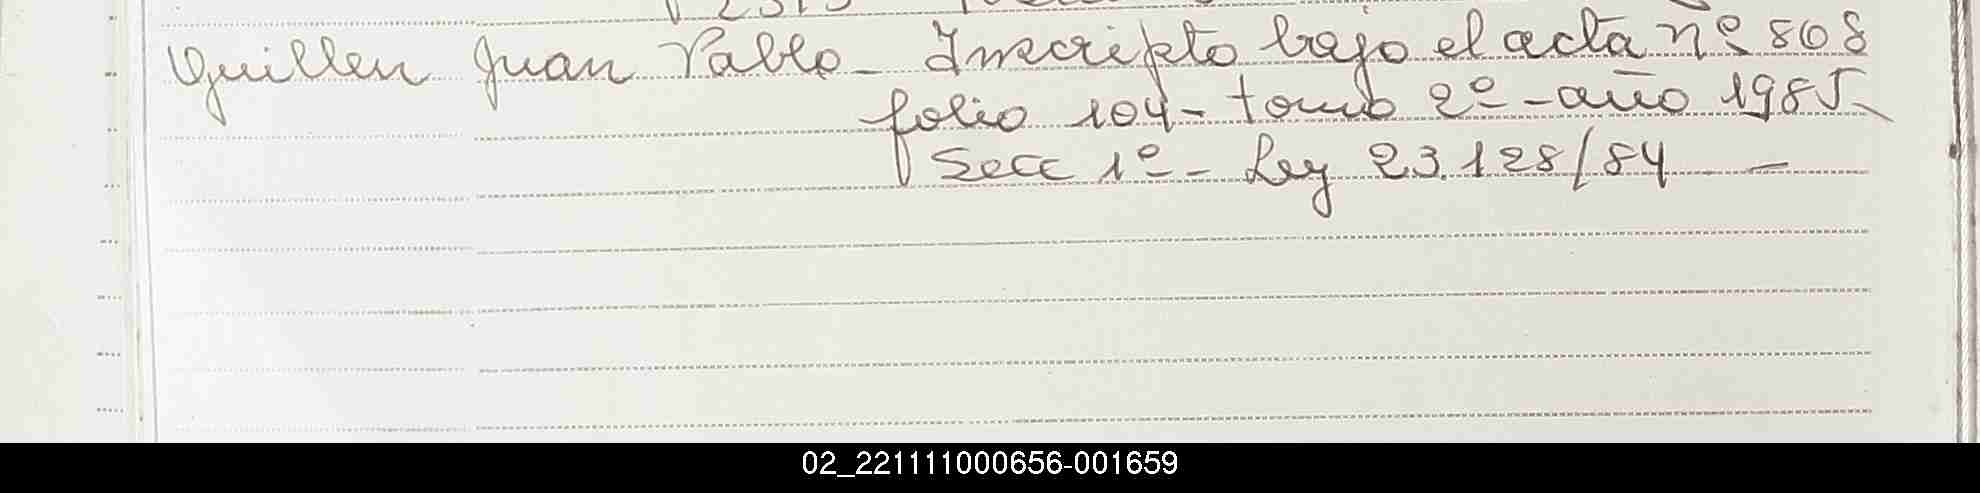 Guillen Juan Pablo - Inscripto bajo el acta nº 808
folio 104 - tomo 2º - año 1985 -
Secc 1º - Ley 23.128/84 -
02_221111000656-001659